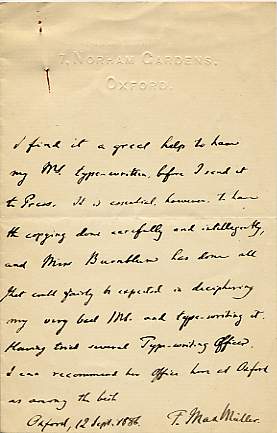 7, NORHAM GARDENS,
OXFORD.
I find it a great help to have
my MS. type-written, before I send it
to Press. It is essential, however, to have
the copying done carefully and intelligently,
and Miss has done all
that could fairly be expected in deciphering
my very bad MS. and type-writing it.
Having tried several Type-writing Offices,
I can recommend her Office here at Oxford
as among the best
Oxford, 12 Sept. 1886. F. Max Müller.